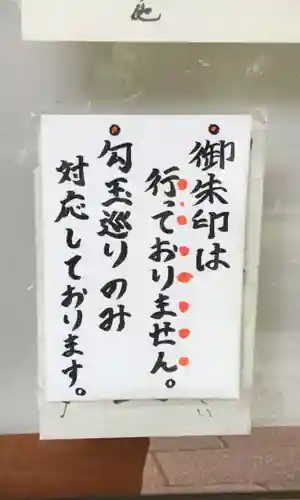 御朱印は
行っておりません。
勾玉巡りのみ
対応しております。